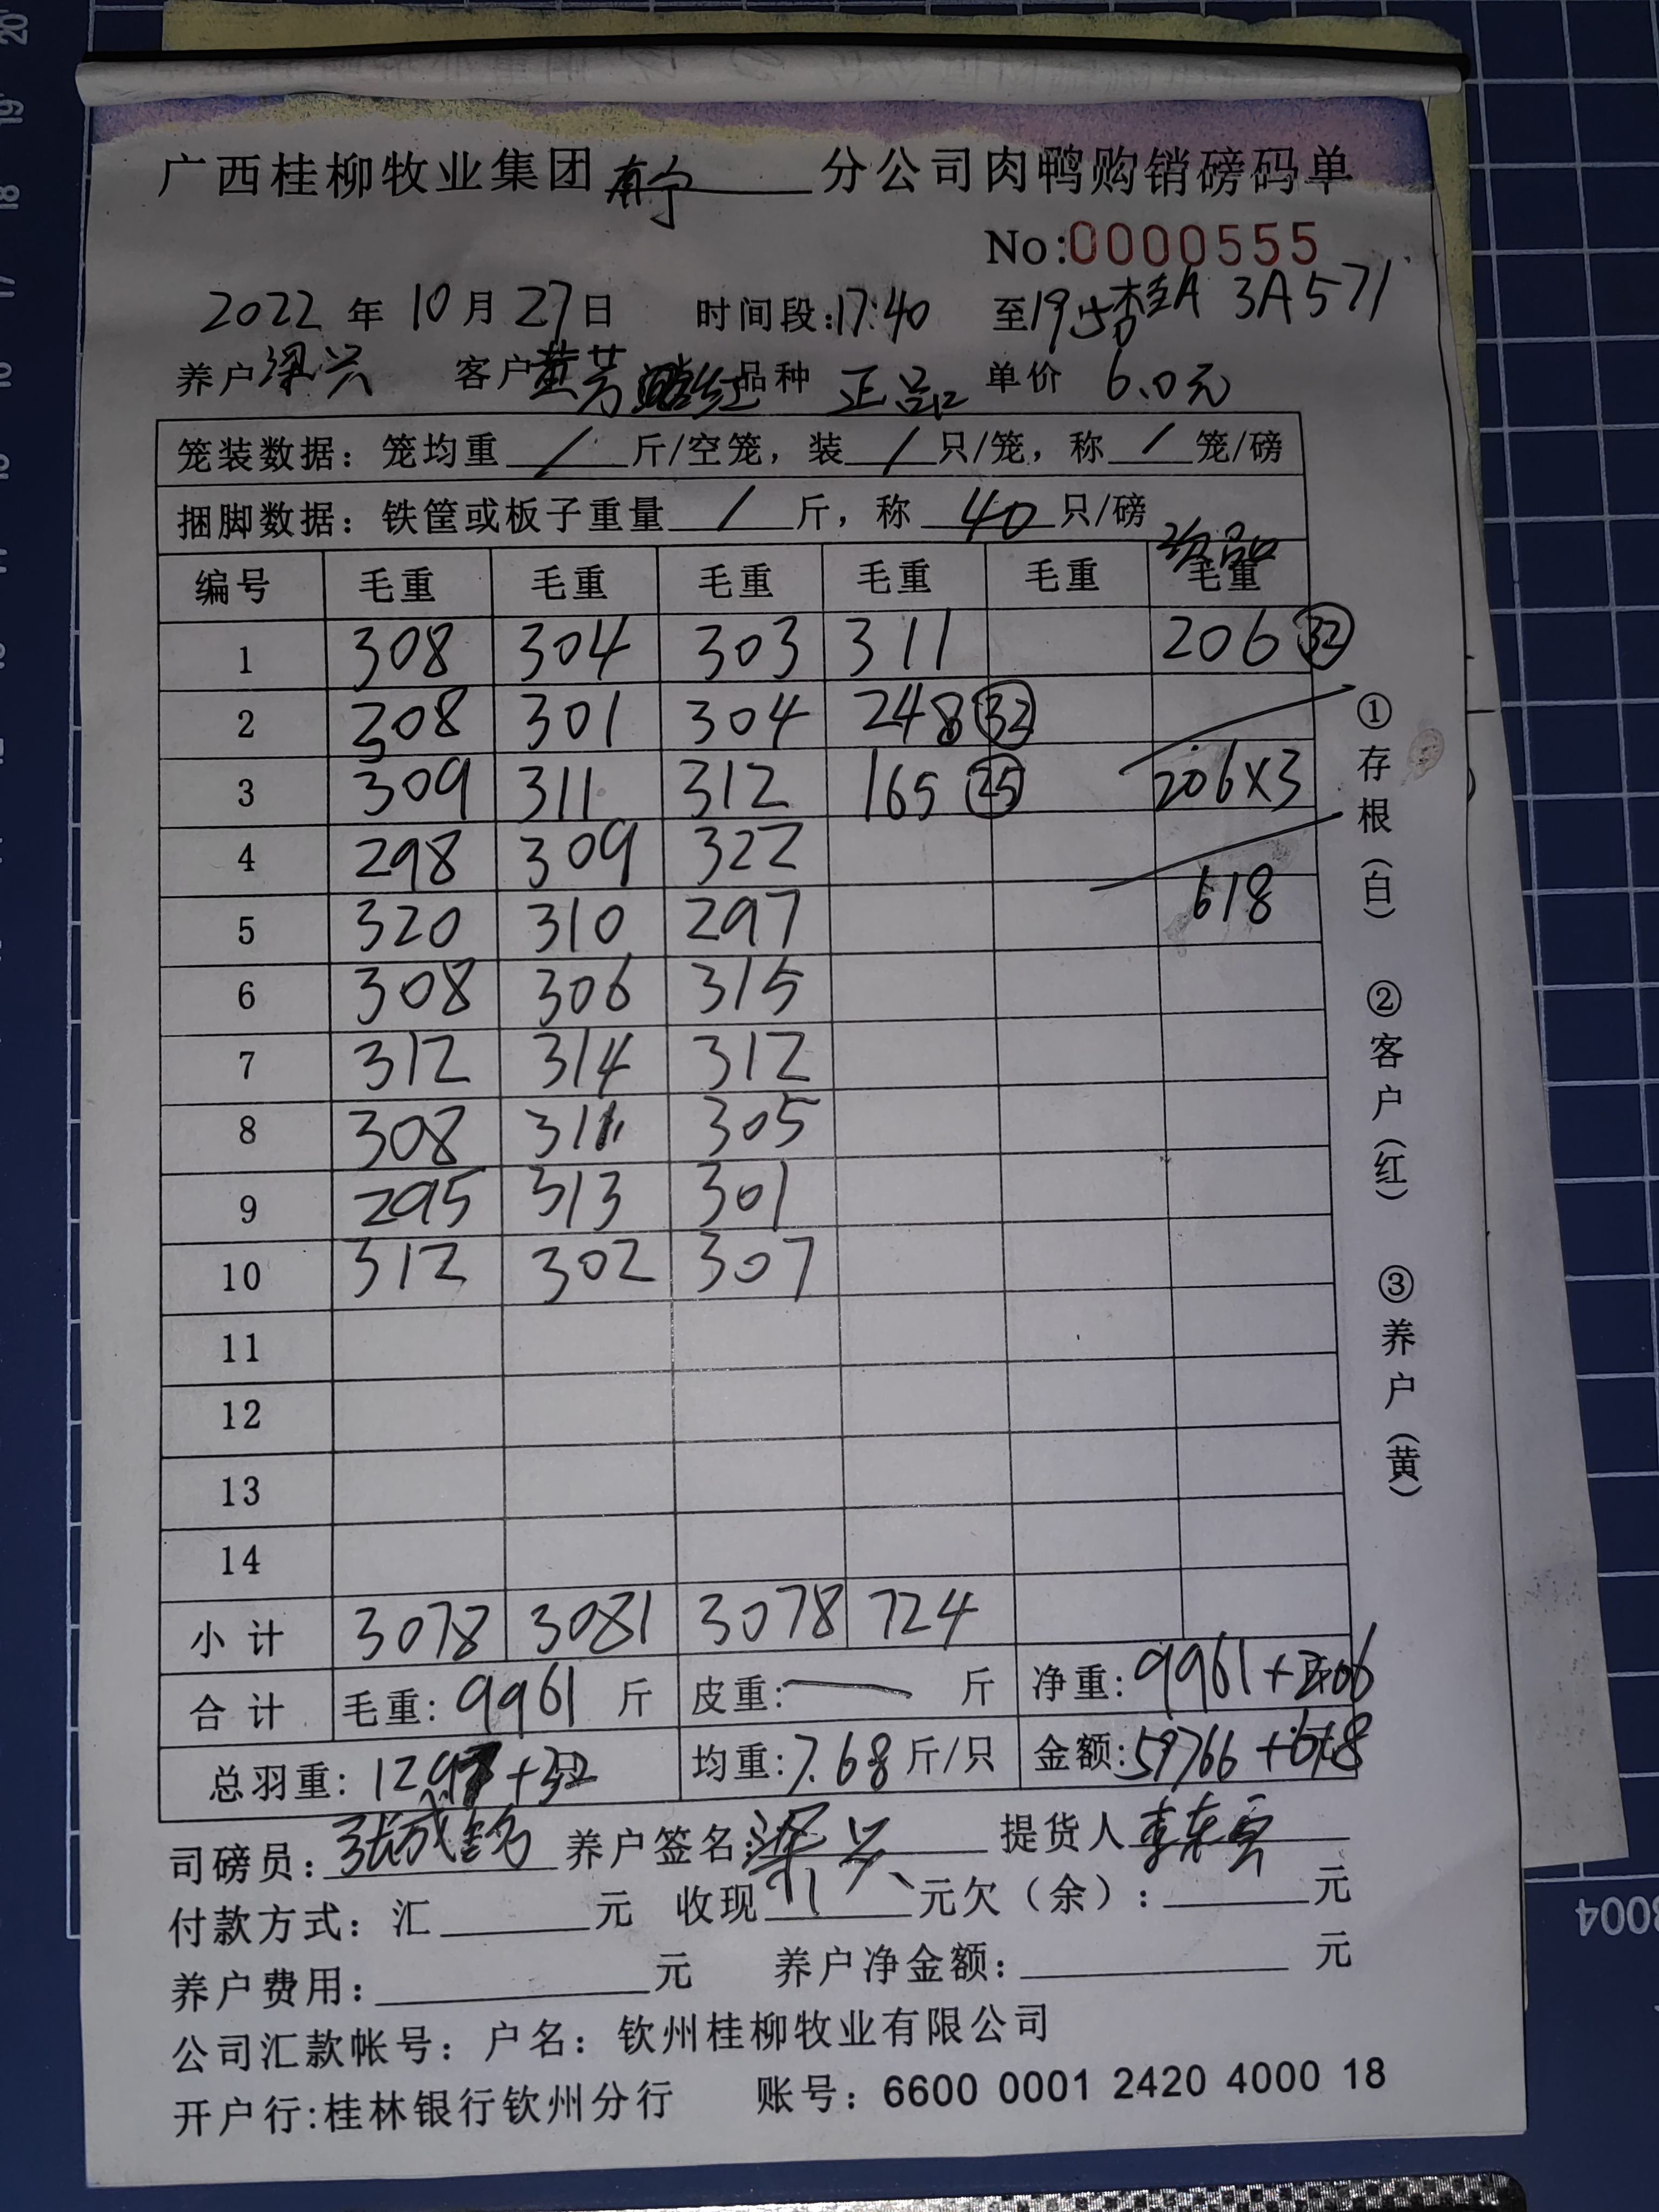 广西桂柳牧业集团 南宁 分公司肉鸭购销磅码单
No:0000555
2022 年 10 月 27 日 时间段:17:40 至19:5 桂A 3A571
养户 梁兴 客户 黄芳 品种 正品 单价 6.0元
笼装数据：笼均重 / 斤/空笼，装 / 只/笼，称 / 笼/磅
捆脚数据：铁筐或板子重量 / 斤，称 40 只/磅
编号 毛重 毛重 毛重 毛重 毛重 毛重
1 308 304 303 311 206 32
2 308 301 304 248 32
3 309 311 312 165 25 206×3
4 298 309 322
5 320 310 297 618
6 308 306 315
7 312 314 312
8 308 311 305
9 295 313 301
10 312 302 307
11
12
13
14
小计 3078 3081 3078 724
合计 毛重: 9961 斤 皮重: — 斤 净重: 9961+206
总羽重: 1297+32 均重: 7.68 斤/只 金额: 59766+618
司磅员: 张成 养户签名: 梁兴 提货人 李东
付款方式：汇 元 收现 元欠（余）: 元
养户费用: 元 养户净金额: 元
公司汇款帐号：户名：钦州桂柳牧业有限公司
开户行:桂林银行钦州分行 账号：6600 0001 2420 4000 18
①存根（白） ②客户（红） ③养户（黄）